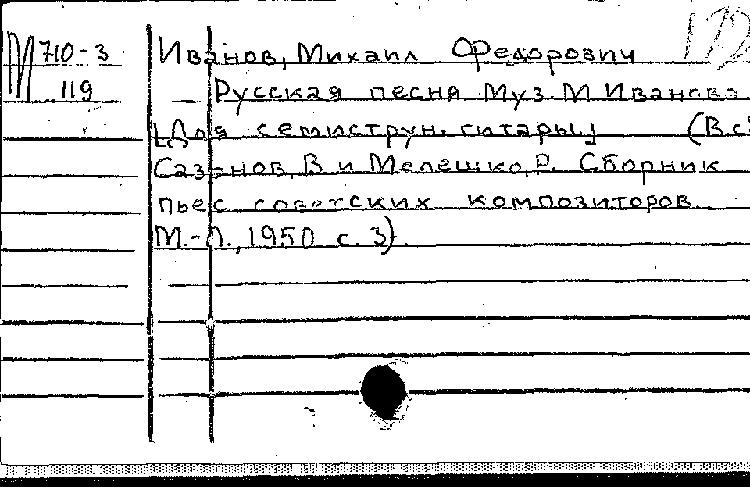 М 710-3
119
Иванов, Михаил Федорович
Русская песня Муз. М Иванова
[Для семиструн. гитары]  (В сб:
Сазонов, В и Мелешко, Р. Сборник
пьес советских композиторов.
М.-Л., 1950 с. 3).